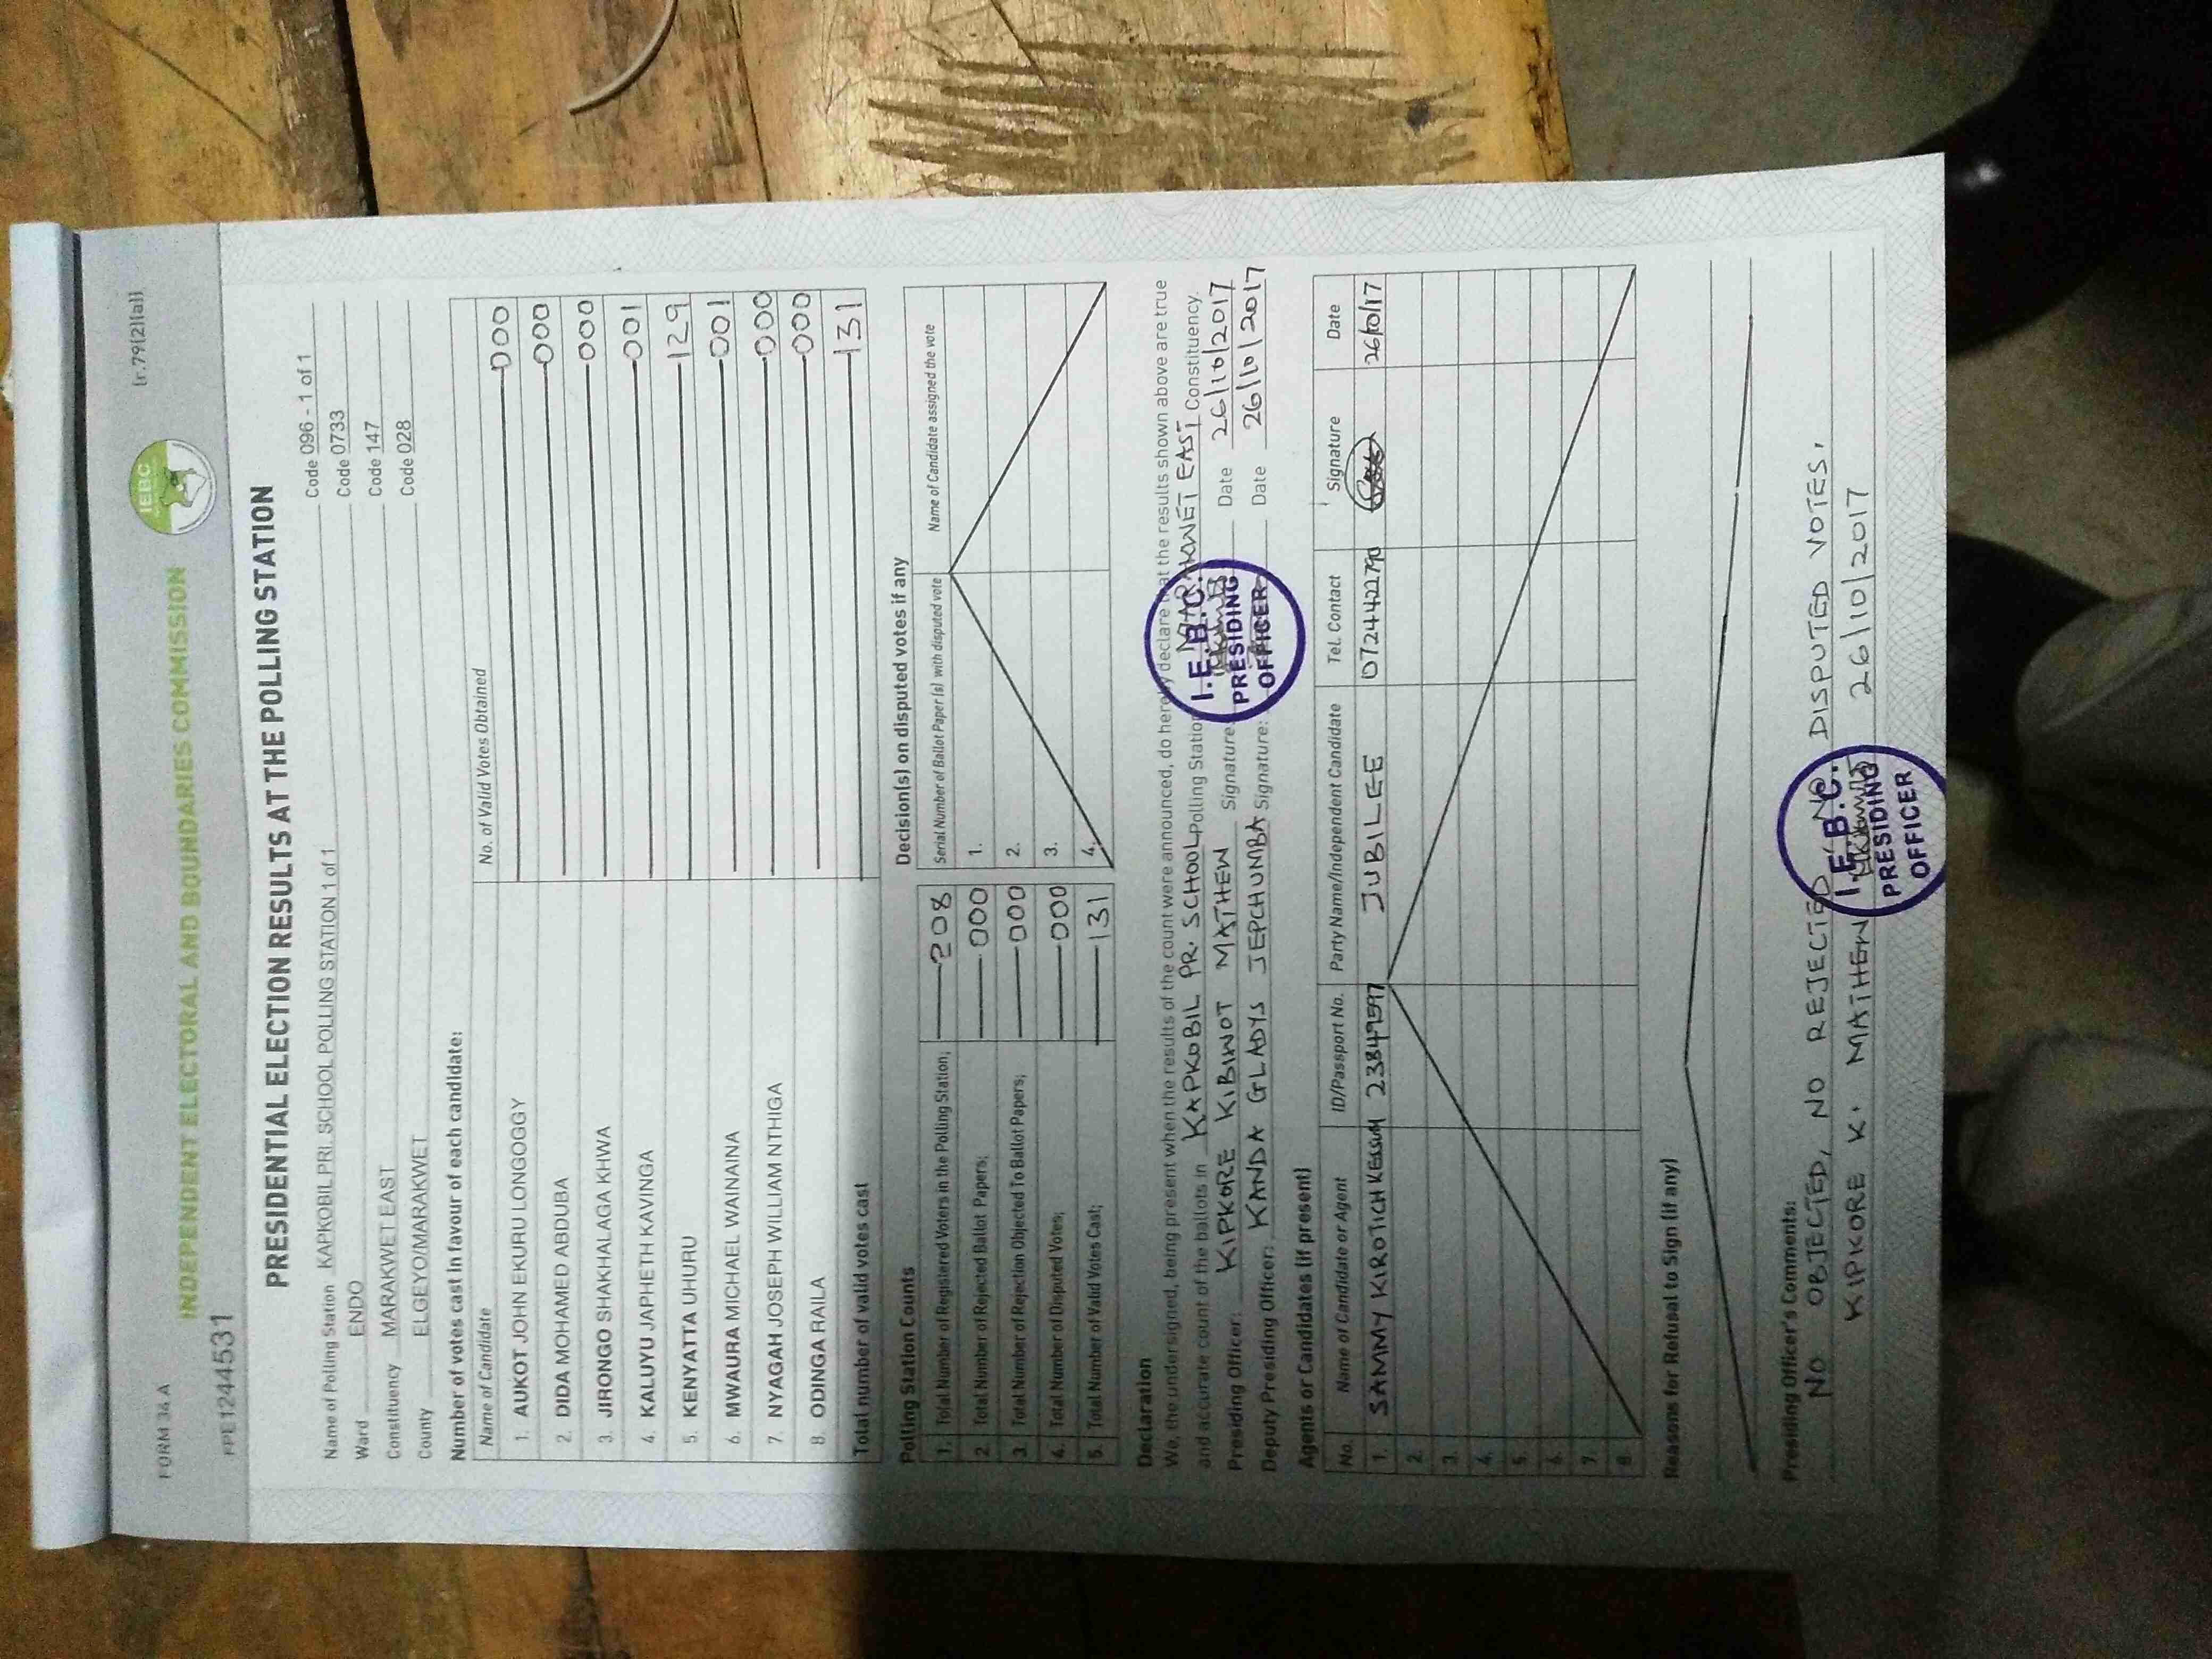 FORM 34 A
(r.79(2)(a))
IEBC
INDEPENDENT ELECTORAL AND BOUNDARIES COMMISSION
FPE1244531
PRESIDENTIAL ELECTION RESULTS AT THE POLLING STATION
Name of Polling Station KAPKOBIL PRI. SCHOOL POLLING STATION 1 of 1 Code 096 - 1 of 1
Ward ENDO Code 0733
Constituency MARAKWET EAST Code 147
County ELGEYO/MARAKWET Code 028
Number of votes cast in favour of each candidate:
Name of Candidate No. of Valid Votes Obtained
1. AUKOT JOHN EKURU LONGOGGY 000
2. DIDA MOHAMED ABDUBA 000
3. JIRONGO SHAKHALAGA KHWA 000
4. KALUYU JAPHETH KAVINGA 001
5. KENYATTA UHURU 129
6. MWAURA MICHAEL WAINAINA 001
7. NYAGAH JOSEPH WILLIAM NTHIGA 000
8. ODINGA RAILA 000
Total number of valid votes cast 131
Polling Station Counts
1. Total Number of Registered Voters in the Polling Station; 208
2. Total Number of Rejected Ballot Papers; 000
3. Total Number of Rejection Objected To Ballot Papers; 000
4. Total Number of Disputed Votes; 000
5. Total Number of Valid Votes Cast; 131
Decision(s) on disputed votes if any
Serial Number of Ballot Paper (s) with disputed vote Name of Candidate assigned the vote
1.
2.
3.
4.
Declaration
We, the undersigned, being present when the results of the count were announced, do hereby declare that the results shown above are true
and accurate count of the ballots in KAPKOBIL PR. SCHOOL Polling Station MARAKWET EAST Constituency.
Presiding Officer: KIPKORE KIBIWOT MATHEW Signature: Date 26/10/2017
Deputy Presiding Officer: KANDA GLADYS JEPCHUMBA Signature: Date 26/10/2017
I.E.B.C.
PRESIDING
OFFICER
Agents or Candidates (if present)
No. Name of Candidate or Agent ID/Passport No. Party Name/Independent Candidate Tel. Contact Signature Date
1. SAMMY KIROTICH KESSUM 23849597 JUBILEE 0724422790 26/10/17
2.
3.
4.
5.
6.
7.
8.
Reasons for Refusal to Sign (if any)
Presiding Officer's Comments:
NO OBJECTED, NO REJECTED, NO DISPUTED VOTES.
KIPKORE K. MATHEW 26/10/2017
I.E.B.C.
PRESIDING
OFFICER